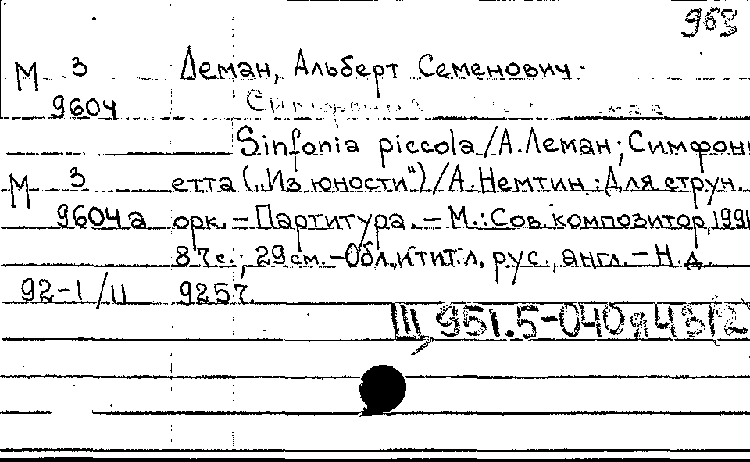 963
М 3 Леман, Альберт Семенович.
9604
Sinfonia piccola / А. Леман; Симфони
М 3 етта („Из юности") / А. Немтин : Для струн.
9604а орк. – Партитура. – М.: Сов. композитор, 1991
87 с.; 29 см. – Обл. и тит. л. рус., англ. – Н. д.
92-1/11 9257.
Ш 951.5-040я43/2